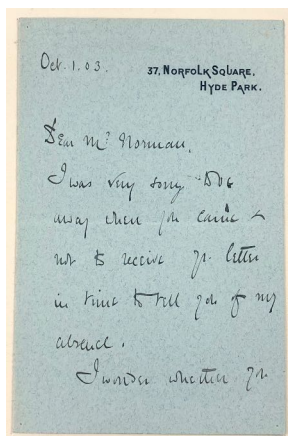 Oct. 1. 03.
37, NORFOLK SQUARE,
HYDE PARK.
Dear Mr Norman,
I was very sorry to be
away when you came &
not to receive yr letter
in time to tell you of my
absence.
I wonder whether you